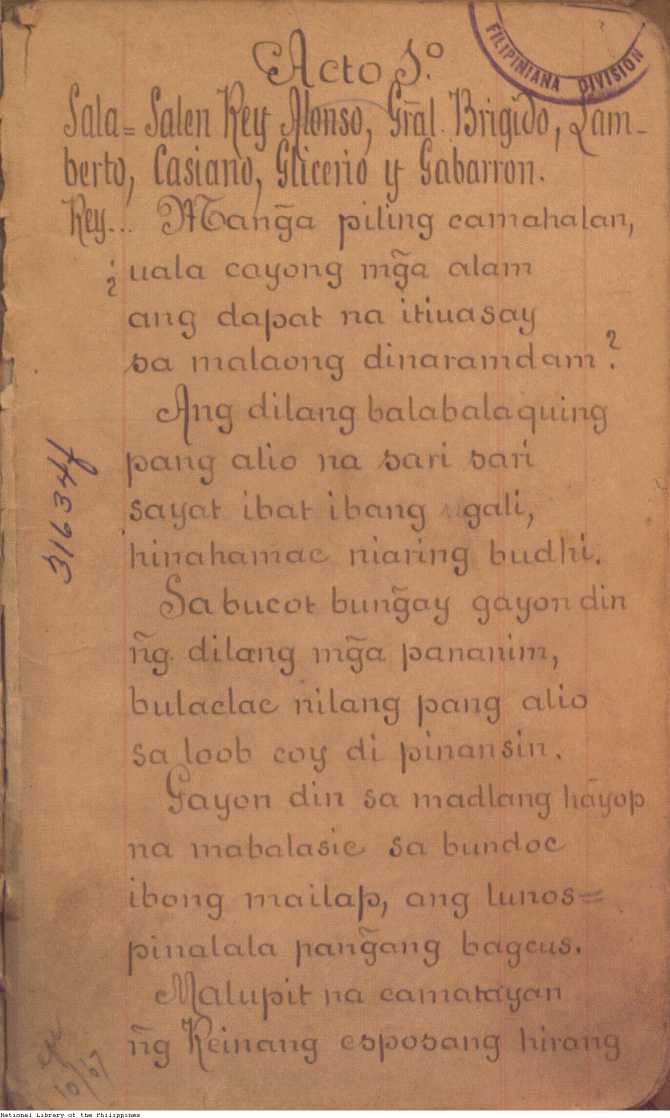 FILIPINIANA DIVISION
Acto 1.º
Sala= Salen Rey Alonso, Gr̃al. Brigido, Lam-
berto, Casiano, Glicerio y Gabarron.
Rey... Mang̃a piling camahalan,
¿uala cayong mg̃a alam
ang dapat na itiuasay
sa malaong dinaramdam?
Ang dilang balabalaquing
pang alio na sari sari
sayat ibat ibang ugali,
hinahamac niaring budhi.
Sa bucot bung̃gay gayon din
ñg dilang mg̃a pananim,
bulaclac nilang pang alio
sa loob coy di pinansin.
Gayon din sa madlang hayop
na mabalasic sa bundoc
ibong mailap, ang lunos=
pinalala pang̃ang bagcus.
Malupit na camatayan
ñg Reinang esposang hirang
31634f
10/67
National Library of the Philippines